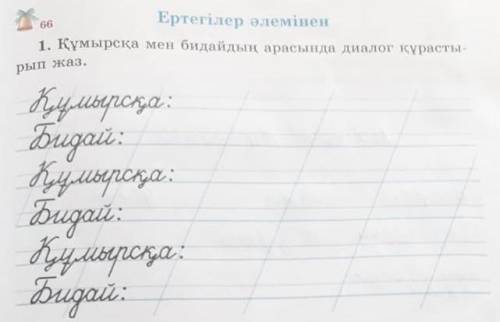 66
Ертегілер әлемінен
1. Құмырсқа мен бидайдың арасында диалог құрасты-
рып жаз.
Құмырсқа:
Бидай:
Құмырсқа:
Бидай:
Құмырсқа:
Бидай: